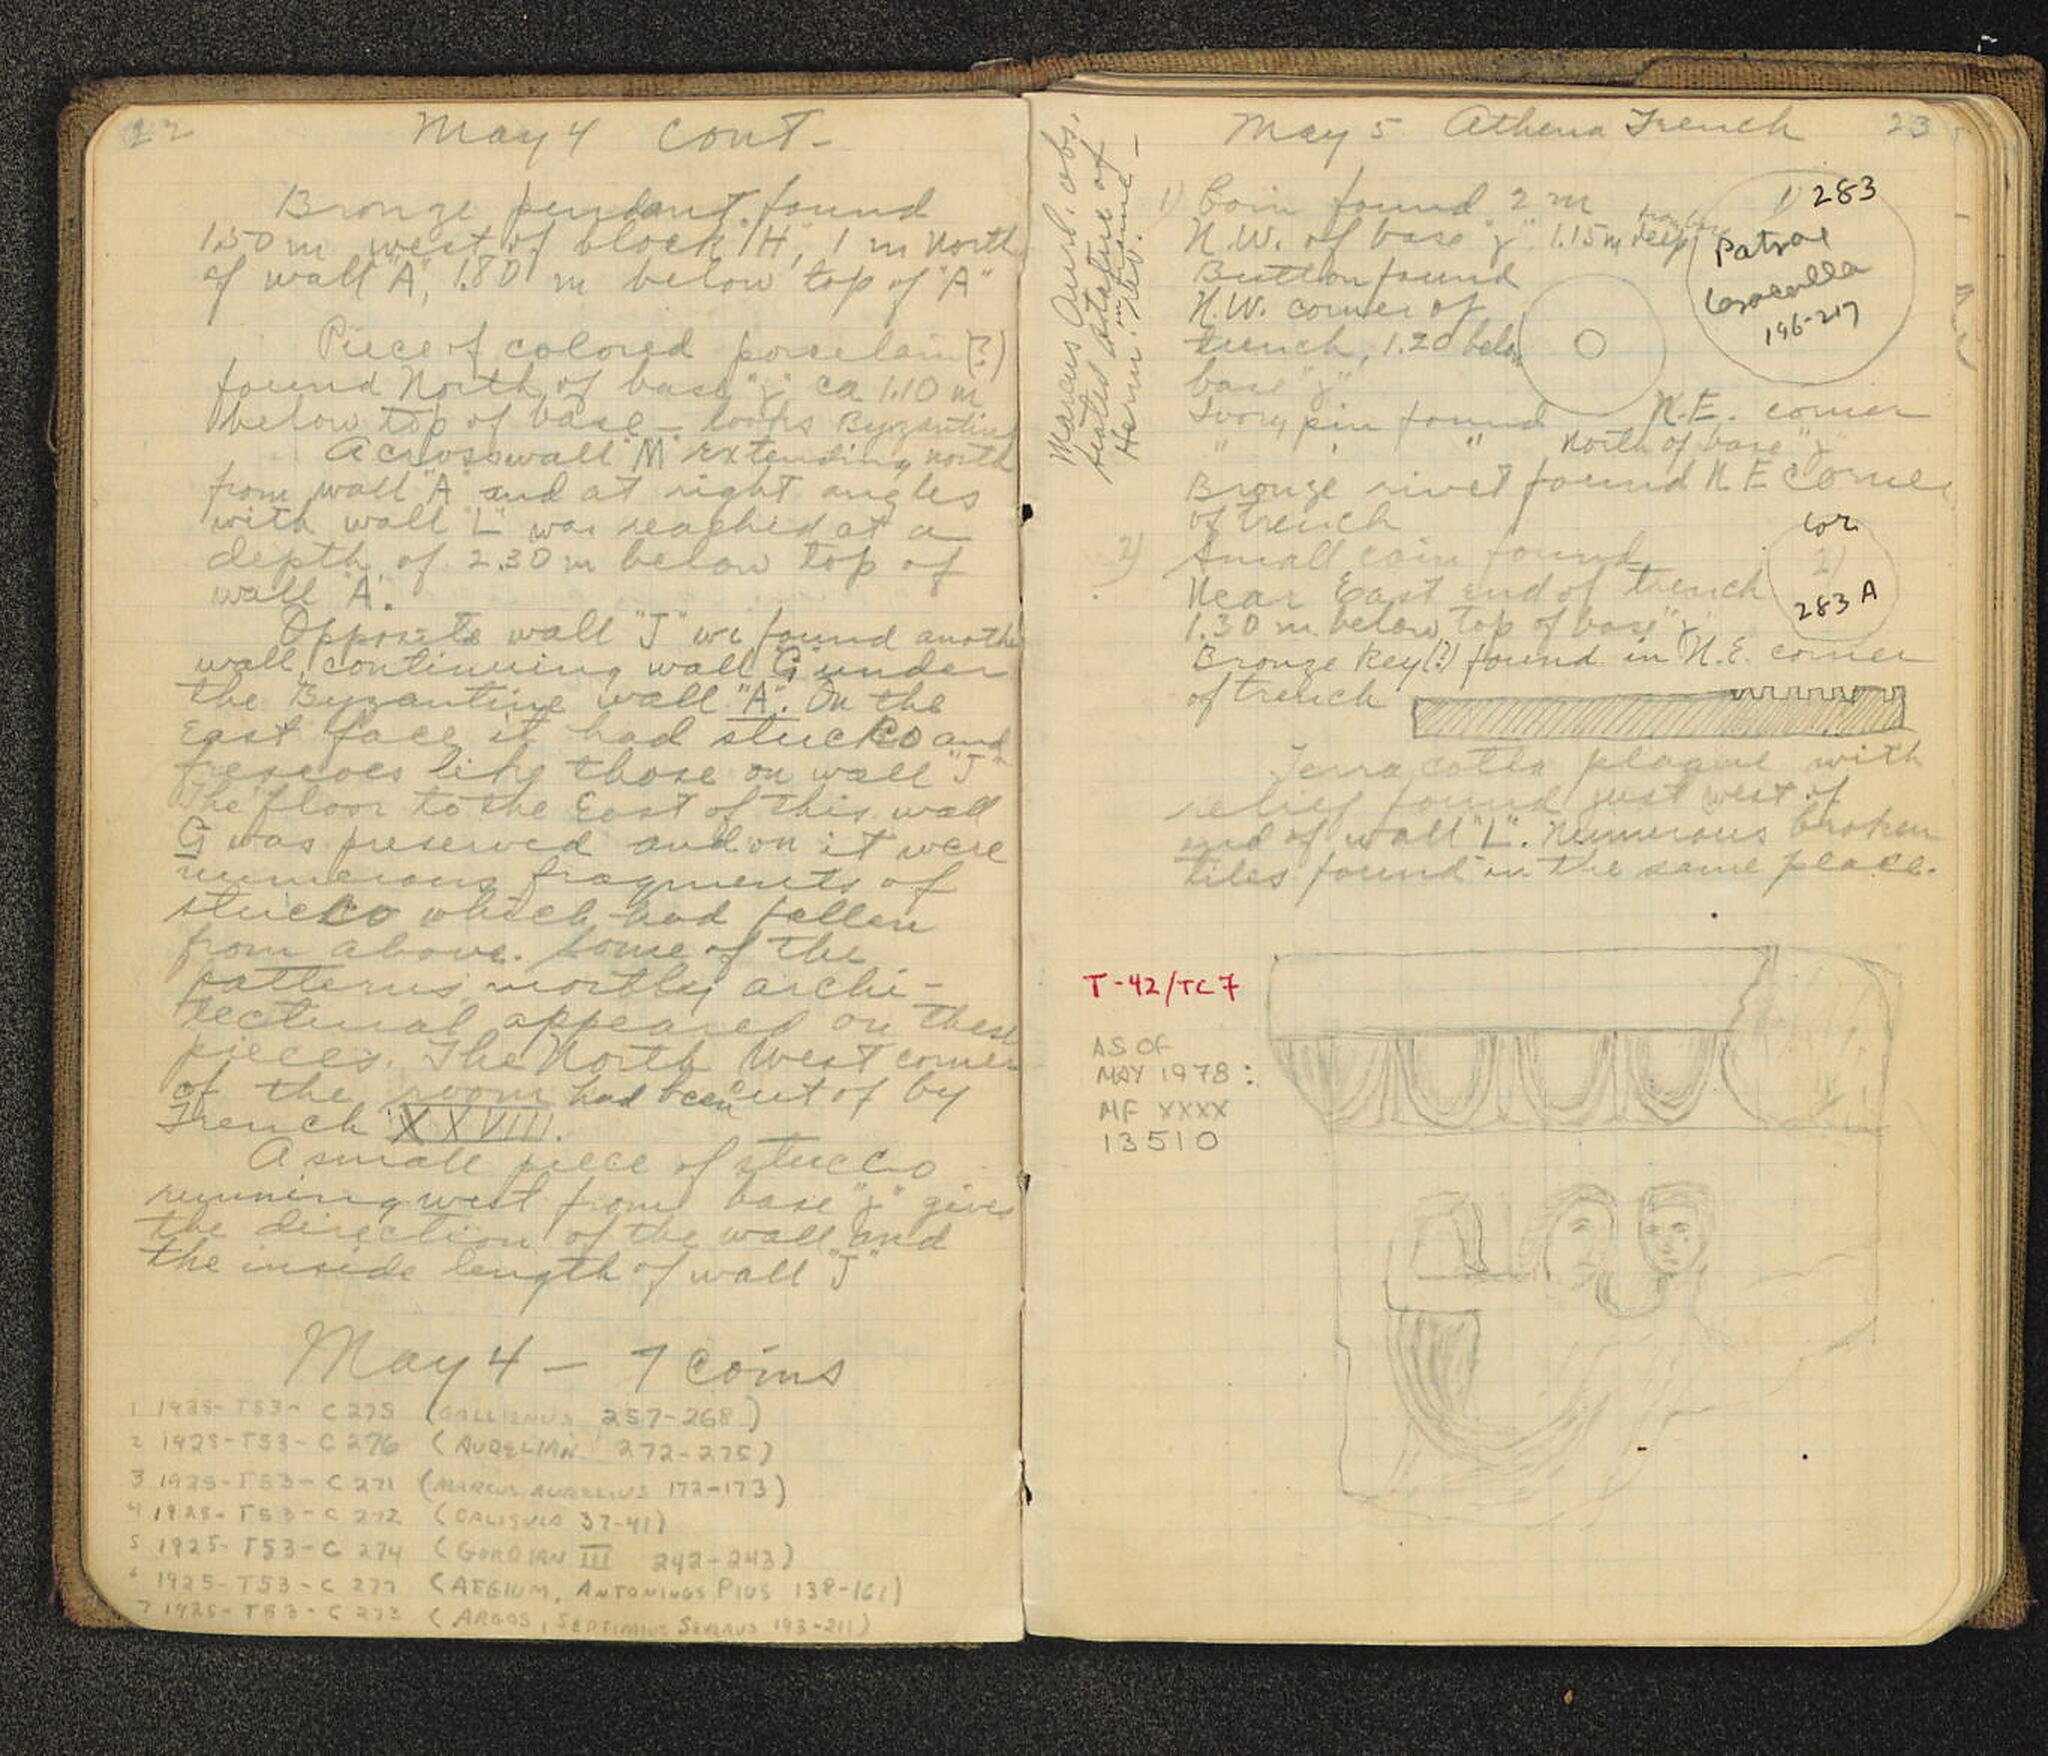 22
May 4 cont-
Bronze pendant found
1.50 m west of block "H", 1 m North
of wall "A", 1.80 m below top of "A"
Piece of colored porcelain (?)
found North of base "j" ca 1.10 m
below top of base - looks Byzantine
A crosswall "M" extending north
from wall "A" and at right angles
with wall "L" was reached at a
depth of 2.30 m below top of
wall "A".
Opposite wall "J" we found another
wall, continuing wall G under
the Byzantine wall "A". On the
East face it had stucco and
frescoes like those on wall "J"
The floor to the East of this wall
G was preserved and on it were
numerous fragments of
stucco which had fallen
from above. Some of the
patterns, mostly archi-
tectural appeared on these
pieces. The North West corner
of the room had been cut of by
Trench XXVIII.
A small piece of stucco
running west from base "j" gives
the direction of the wall and
the inside length of wall "J"
May 4 - 7 coins
1 1925-T53-C 275 (GALLIENUS 257-268)
2 1925-T53-C 276 (AURELIAN 272-275)
3 1925-T53-C 271 (MARCUS AURELIUS 172-173)
4 1925-T53-C 272 (CALIGULA 37-41)
5 1925-T53-C 274 (GORDIAN III 242-243)
6 1925-T53-C 277 (AEGIUM, ANTONINUS PIUS 138-161)
7 1925-T53-C 273 (ARGOS, SEPTIMIUS SEVERUS 193-211)
May 5 Athena Trench 23
Marcus Aurel. obs.
seated statue of
Herm. on rev.
1) Coin found 2 m
N.W. of base "j" 1.15 m deep
Button found
N.W. corner of
trench, 1.20 below
base "j"
1) 283
Patrae
Caracalla
196-217
Ivory pin found N.E. corner
" " " North of base "j"
Bronze rivet found N E Corner
of trench
2) Small coin found
Near East end of trench
1.30 m below top of base "j"
Cor.
2)
283 A
Bronze Key (?) found in N.E. corner
of trench
Terra cotta plaque with
relief found just west of
end of wall "L". Numerous broken
tiles found in the same place.
T-42/TC 7
AS OF
MAY 1978:
MF XXXX
13510